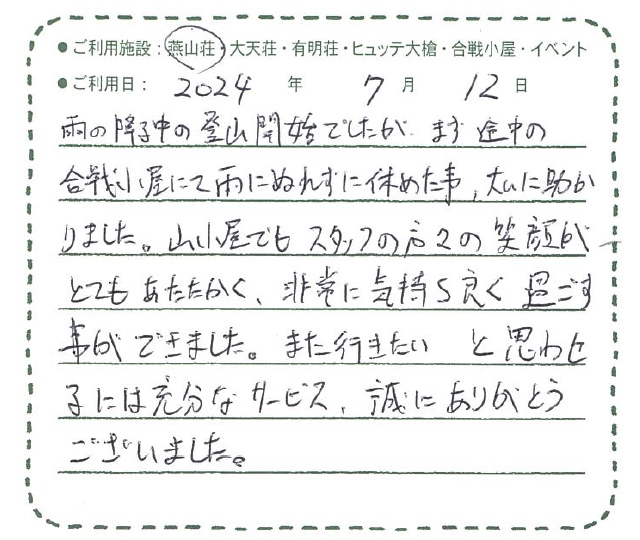 ●ご利用施設：燕山荘・大天荘・有明荘・ヒュッテ大槍・合戦小屋・イベント
●ご利用日： 2024 年 7 月 12 日
雨の降る中の登山開始でしたが、まず途中の
合戦小屋にて雨にぬれずに休めた事、大いに助か
りました。山小屋でもスタッフの方々の笑顔が
とてもあたたかく、非常に気持ち良く過ごす
事ができました。また行きたい と思わせ
るには充分なサービス、誠にありがとう
ございました。